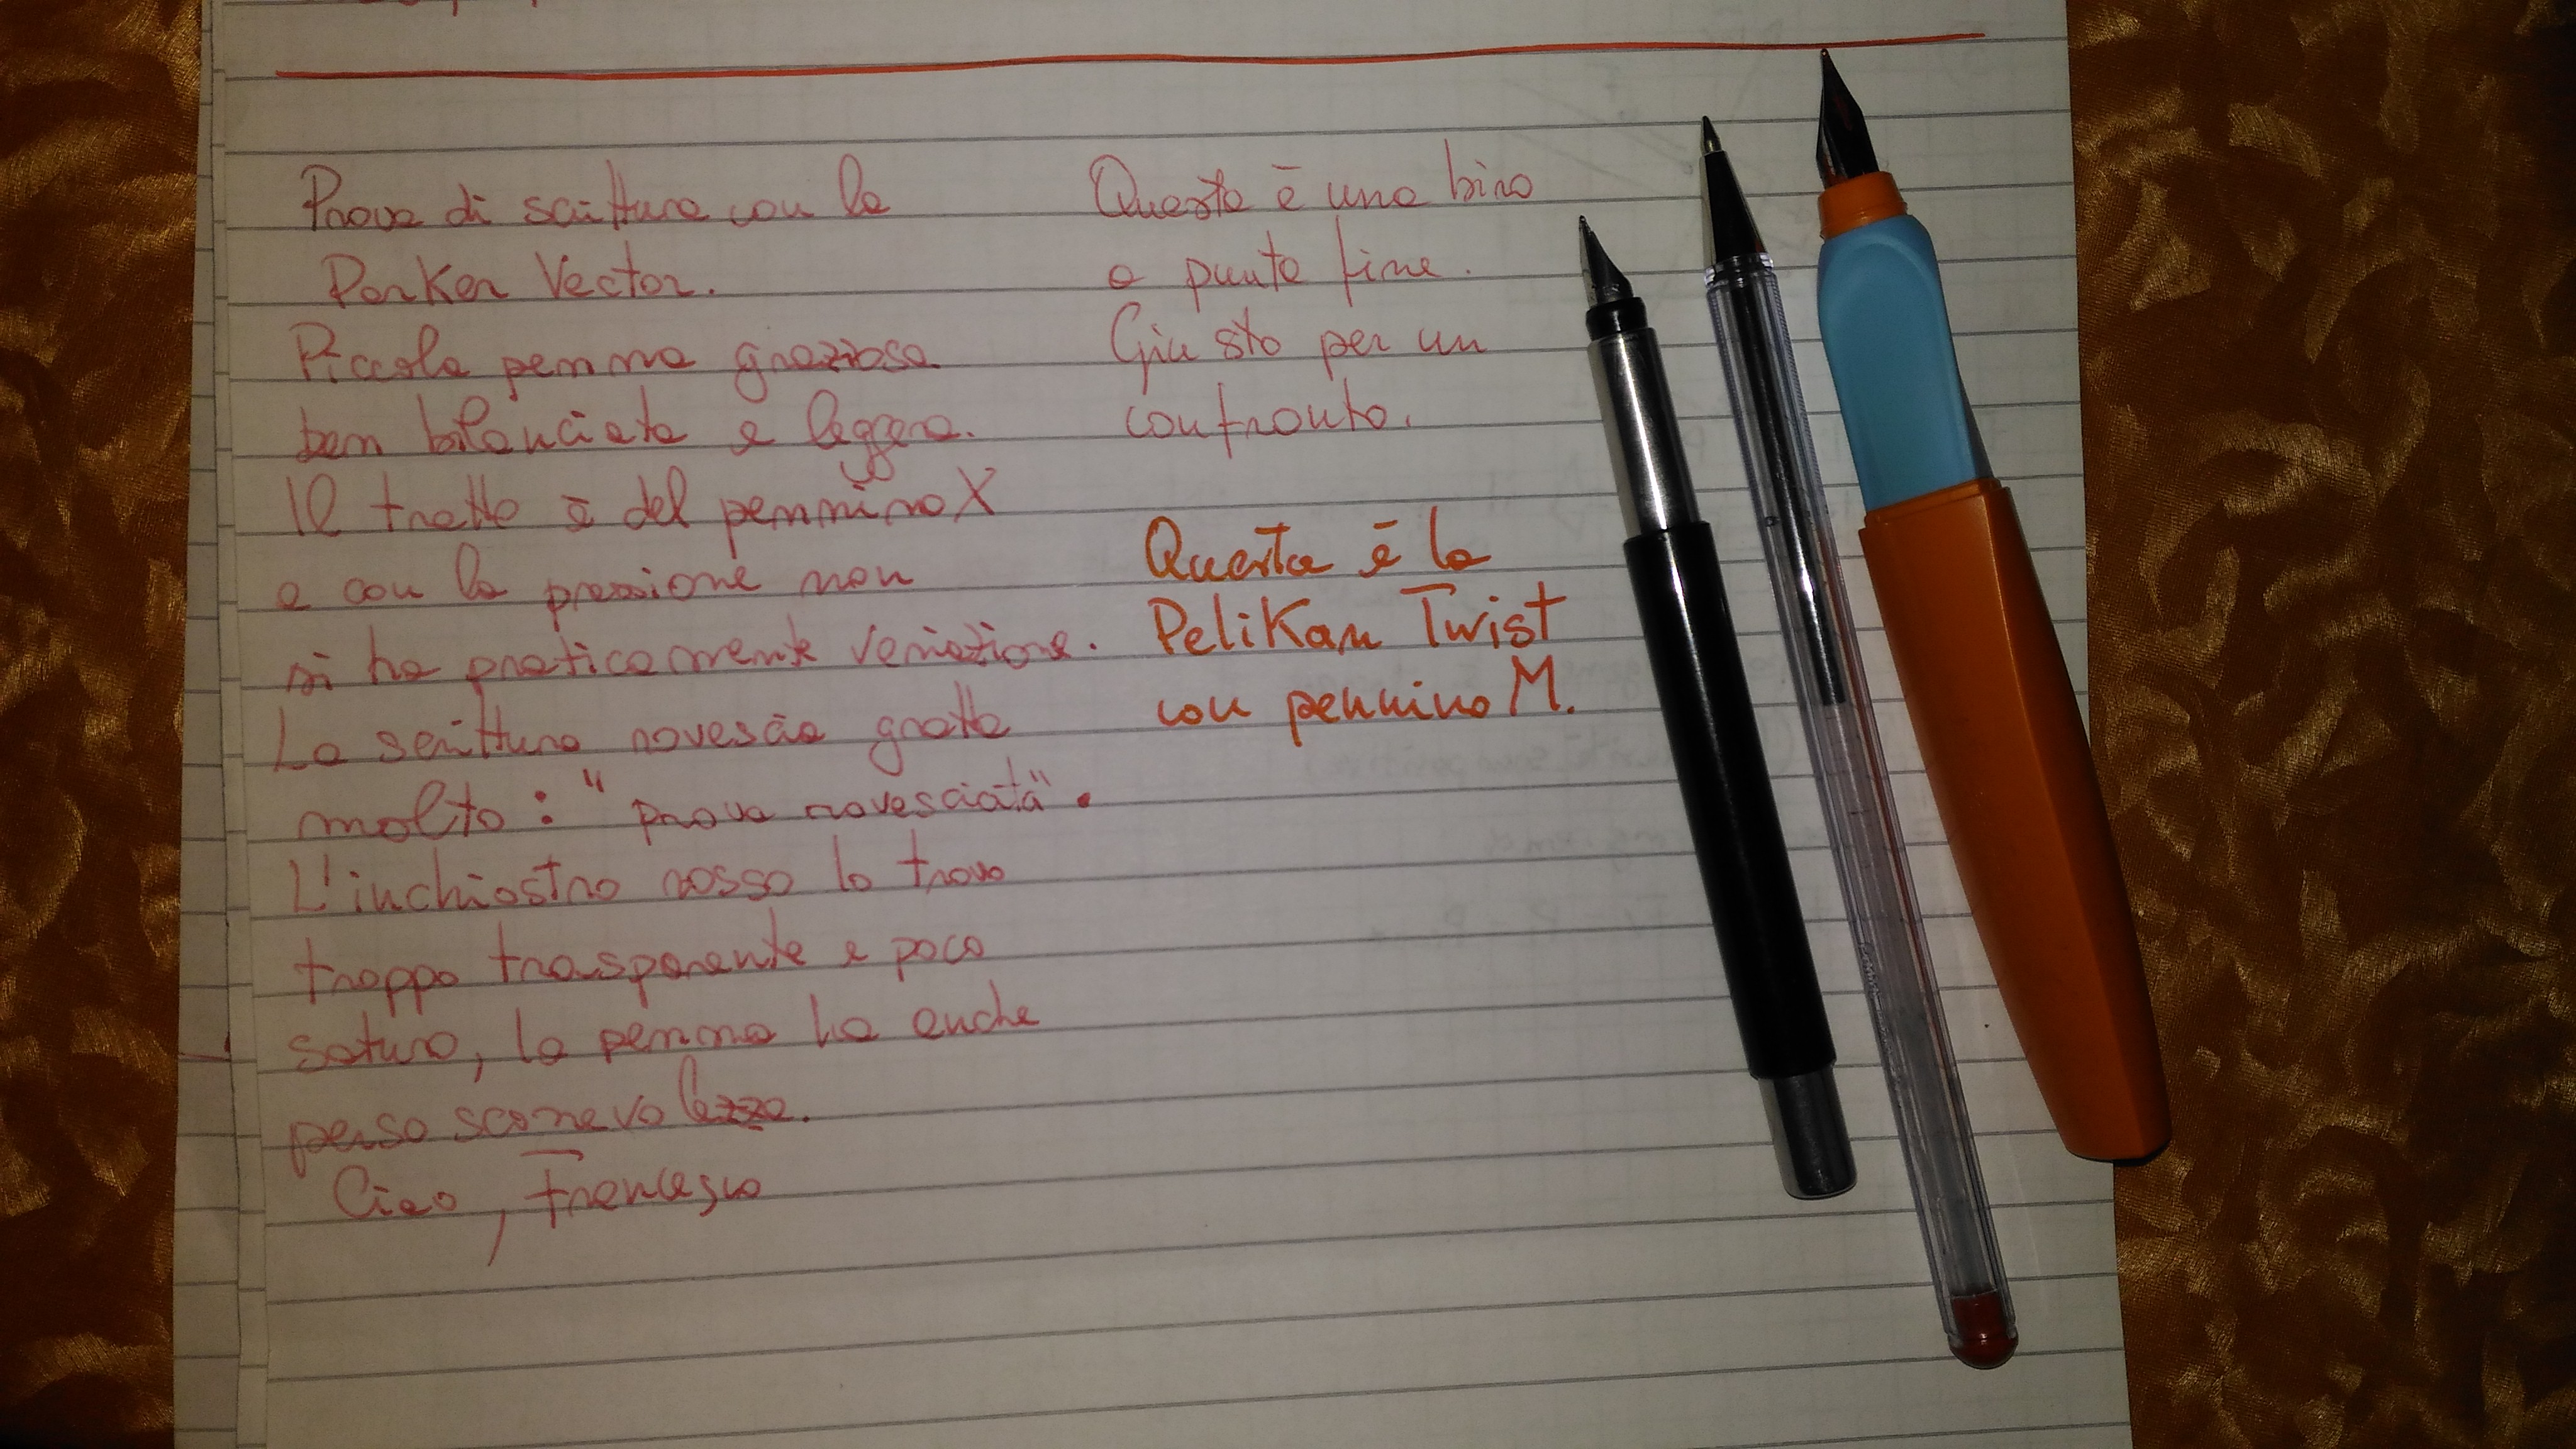 Prova di scrittura con la
Parker Vector.
Piccola penna graziosa
ben bilanciata e leggera.
Il tratto è del pennino X
e con la pressione non
si ha praticamente variazione.
La scrittura rovescia gratta
molto: "prova rovesciata".
L'inchiostro rosso lo trovo
troppo trasparente e poco
saturo, la penna ha anche
perso scorrevolezza.
Ciao, Francesco
Questa è una biro
a punta fine.
Giusto per un
confronto.
Questa è la
Pelikan Twist
con pennino M.